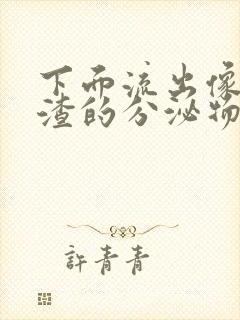 下面流出像
渣的分泌物
許青青